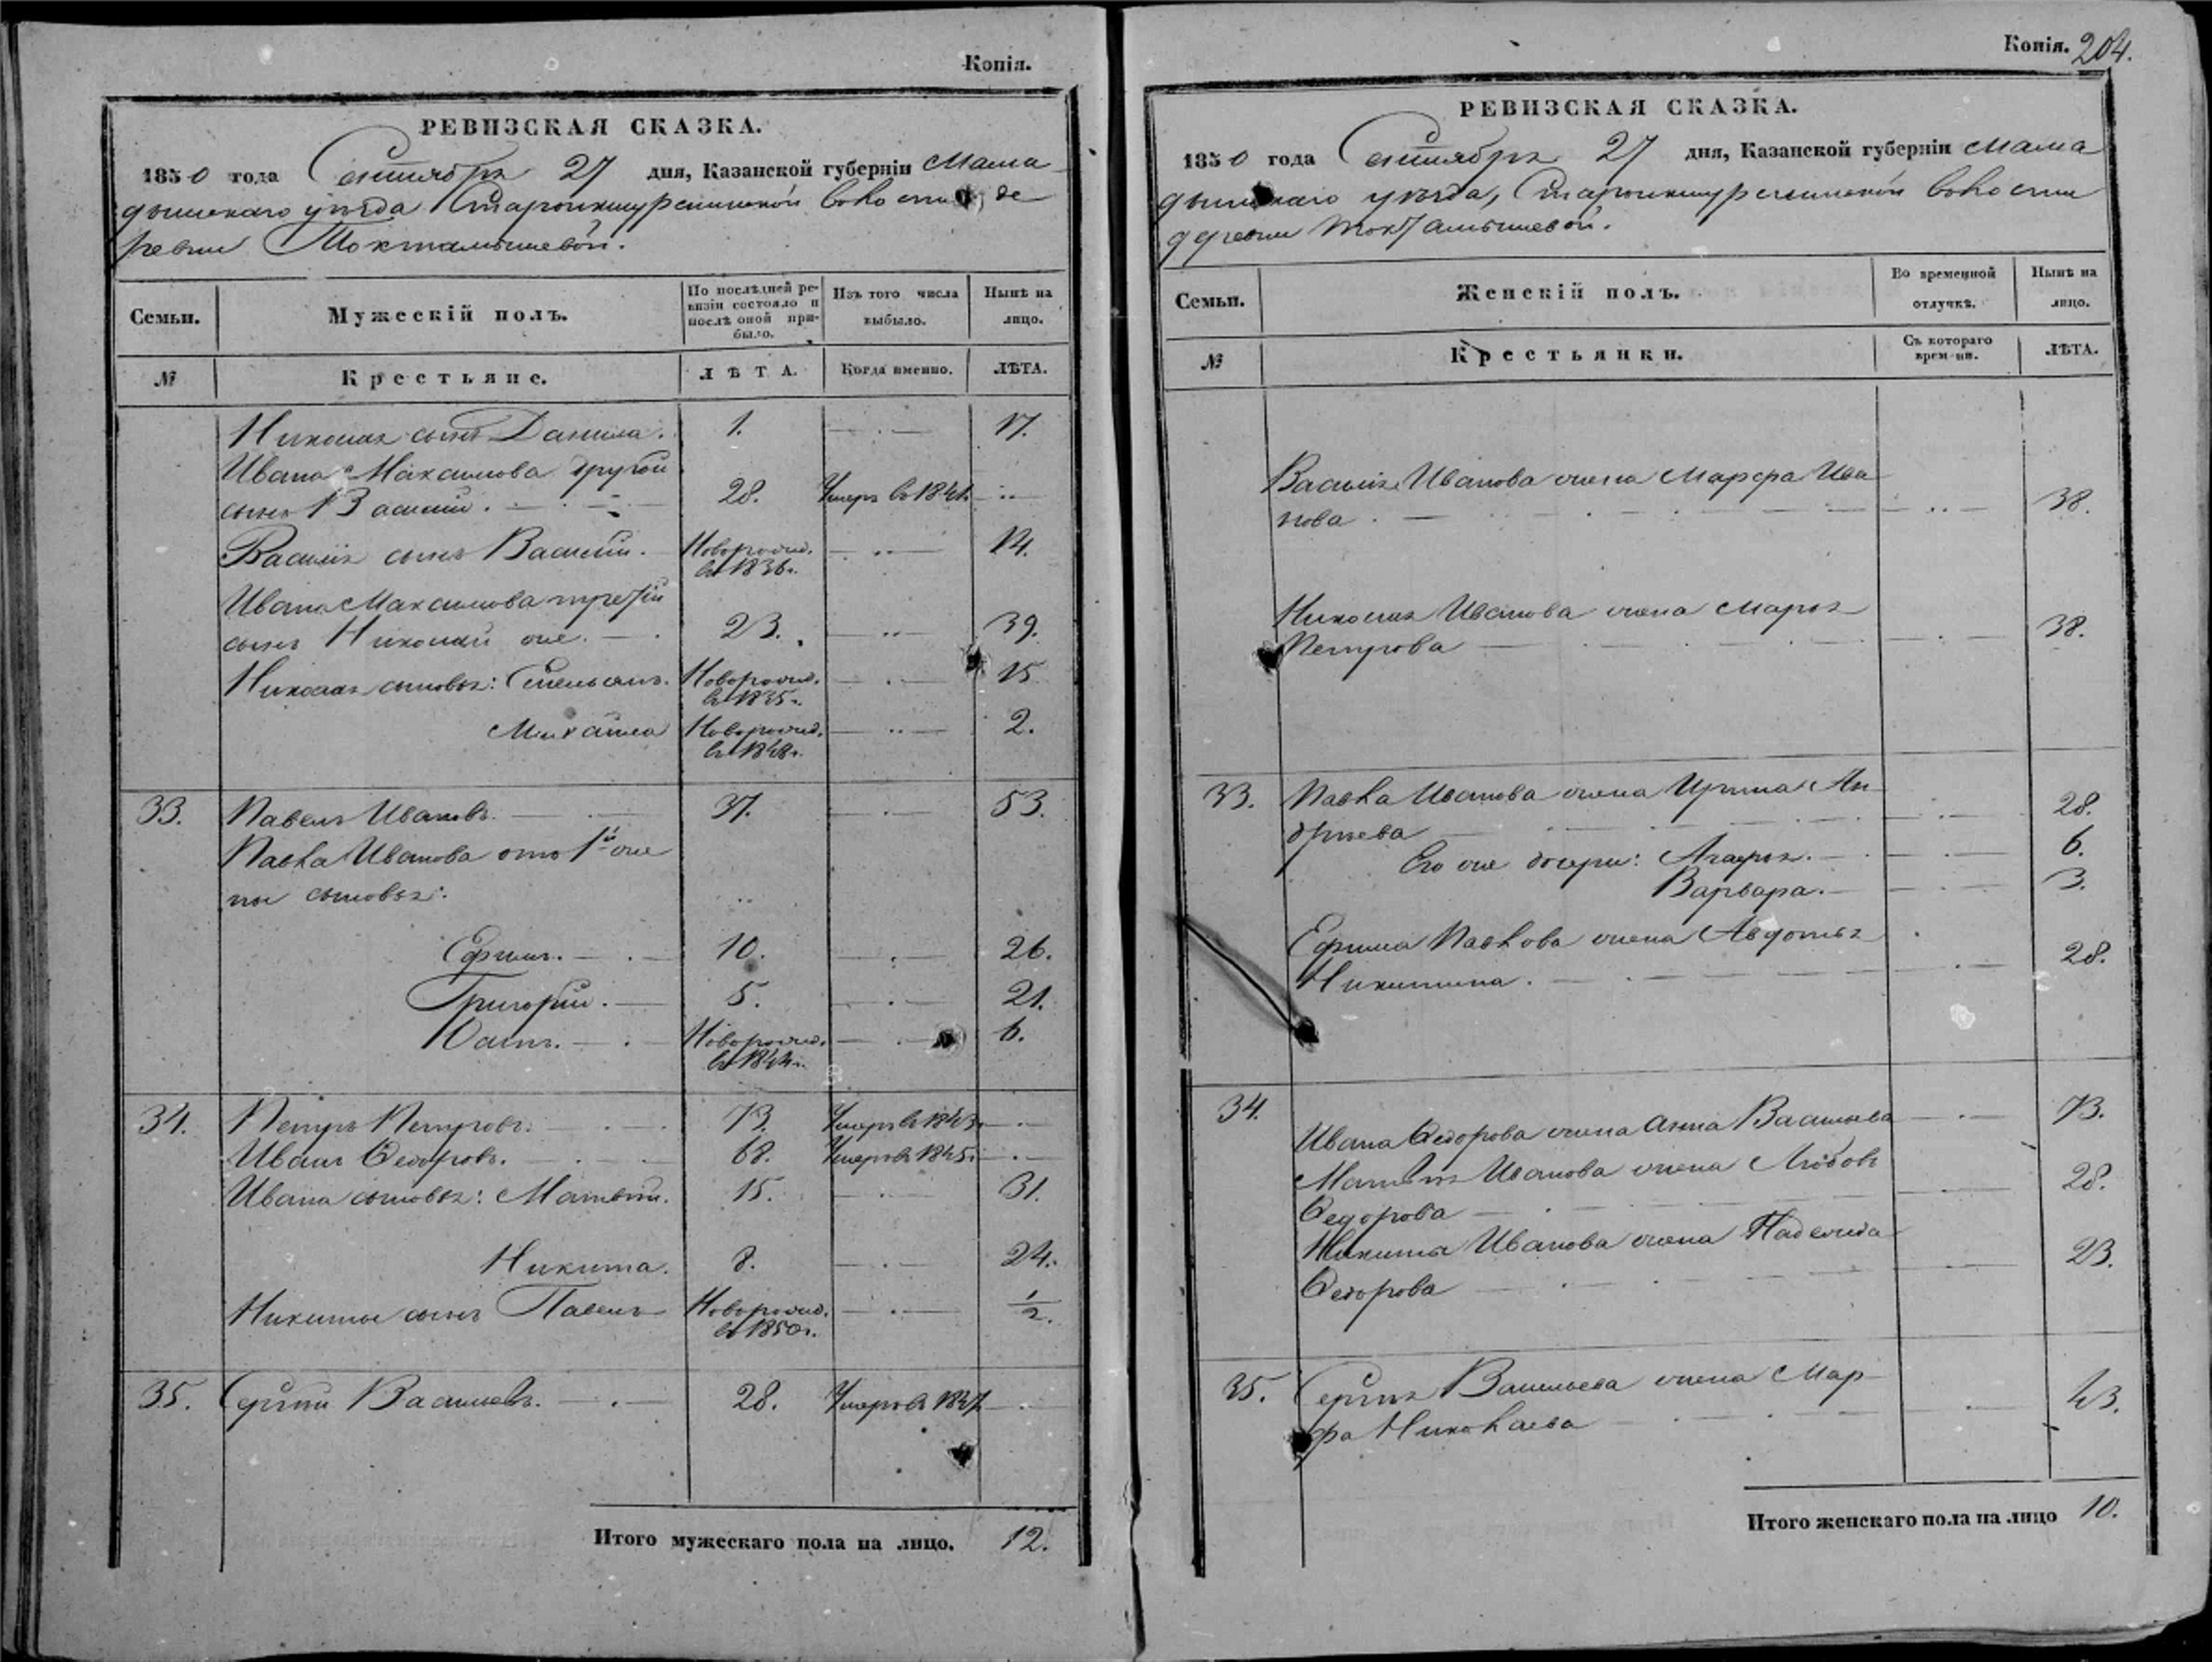 Копія.
РЕВИЗСКАЯ СКАЗКА.
1850 года Сентября 27 дня, Казанской губерніи Мама
дышскаго уѣзда Старокишурешинской волости, де
ревни Токталышевой.
Семьи.
Мужескій полъ.
По послѣдней ре-
визіи состояло и
послѣ оной при-
было.
Изъ того числа
выбыло.
Нынѣ на
лицо.
№
Крестьяне.
ЛѢТА.
Когда именно.
ЛѢТА.
Николая сынъ Данила. 1. 17.
Ивана Максимова другой
сынъ Василій. 28. Умеръ въ 1841.
Василія сынъ Василій. Новорожд. 14.
въ 1836г.
Ивана Максимова третій
сынъ Николай же. 23. 39.
Николая сыновья: Емельянъ. Новорожд. 15
въ 1835г.
Михайла Новорожд. 2.
въ 1848г.
33. Павелъ Ивановъ. 37. 53.
Павла Иванова отъ 1й же
ны сыновья:
Ефимъ. 10. 26.
Григорій. 5. 21.
Осипъ. Новорожд. 6.
въ 1844г.
34. Петръ Петровъ. 73. Умеръ въ 1843.
Иванъ Ѳедоровъ. 68. Умеръ въ 1845.
Ивана сыновья: Матвѣй. 15. 31.
Никита. 8. 24.
Никиты сынъ Павелъ Новорожд. 1/2.
въ 1850г.
35. Сергѣй Васильевъ. 28. Умеръ въ 1847
Итого мужескаго пола на лицо. 12.
Копія. 204.
РЕВИЗСКАЯ СКАЗКА.
1850 года Сентября 27 дня, Казанской губерніи Мама
дышскаго уѣзда, Старокишурешинской волости
деревни Токталышевой.
Семьи.
Женскій полъ.
Во временной
отлучкѣ.
Нынѣ на
лицо.
№
Крестьянки.
Съ котораго
времени.
ЛѢТА.
Василія Иванова жена Марфа Ива
нова. 38.
Николая Иванова жена Марья
Петрова 38.
33. Павла Иванова жена Ирина Ан
дрѣева 28.
Его же дочери: Агафья. 6.
Варвара. 3.
Ефима Павлова жена Авдотья
Никитина. 28.
34. Ивана Ѳедорова жена Анна Васильева 73.
Матвѣя Иванова жена Любовь
Ѳедорова 28.
Никиты Иванова жена Надежда
Ѳедорова 23.
35. Сергѣя Васильева жена Мар-
фа Николаева 43.
Итого женскаго пола на лицо 10.